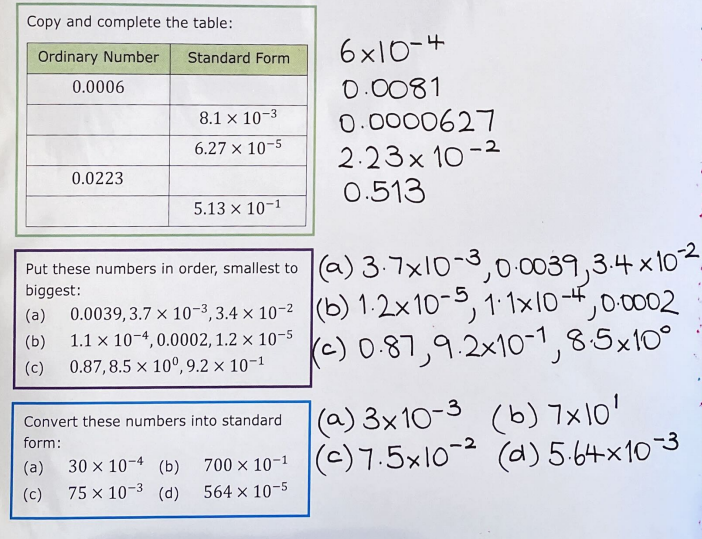 Copy and complete the table:
Ordinary Number Standard Form
0.0006
8.1 × 10⁻³
6.27 × 10⁻⁵
0.0223
5.13 × 10⁻¹
6×10⁻⁴
0.0081
0.0000627
2.23× 10⁻²
0.513
Put these numbers in order, smallest to
biggest:
(a) 0.0039, 3.7 × 10⁻³, 3.4 × 10⁻²
(b) 1.1 × 10⁻⁴, 0.0002, 1.2 × 10⁻⁵
(c) 0.87, 8.5 × 10⁰, 9.2 × 10⁻¹
(a) 3.7×10⁻³, 0.0039, 3.4 ×10⁻²
(b) 1.2×10⁻⁵, 1.1×10⁻⁴, 0.0002
(c) 0.87, 9.2×10⁻¹, 8.5×10⁰
Convert these numbers into standard
form:
(a) 30 × 10⁻⁴ (b) 700 × 10⁻¹
(c) 75 × 10⁻³ (d) 564 × 10⁻⁵
(a) 3×10⁻³ (b) 7×10¹
(c) 7.5×10⁻² (d) 5.64×10⁻³